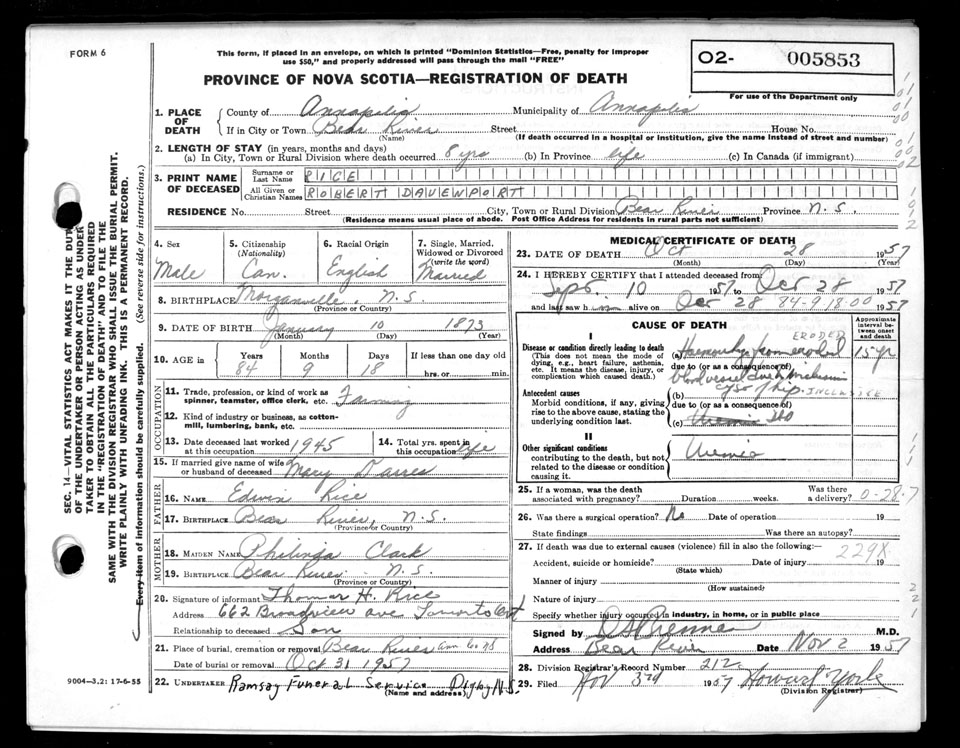 FORM 6
This form, if placed in an envelope, on which is printed "Dominion Statistics—Free, penalty for improper
use $50," and properly addressed will pass through the mail "FREE"
02- 005853
For use of the Department only
PROVINCE OF NOVA SCOTIA—REGISTRATION OF DEATH
1. PLACE OF DEATH
County of Annapolis Municipality of Annapolis
If in City or Town Bear River Street House No.
(Name) (If death occurred in a hospital or institution, give the name instead of street and number)
2. LENGTH OF STAY (in years, months and days)
(a) In City, Town or Rural Division where death occurred 8 yrs (b) In Province life (c) In Canada (if immigrant)
3. PRINT NAME OF DECEASED
Surname or Last Name RICE
All Given or Christian Names ROBERT DAVENPORT
RESIDENCE No. Street City, Town or Rural Division Bear River Province N. S.
(Residence means usual place of abode. Post Office Address for residents in rural parts not sufficient)
4. Sex Male
5. Citizenship (Nationality) Can.
6. Racial Origin English
7. Single, Married, Widowed or Divorced (write the word) Married
8. BIRTHPLACE Morganville, N.S.
(Province or Country)
9. DATE OF BIRTH January 10 1873
(Month) (Day) (Year)
10. AGE in Years Months Days If less than one day old
84 9 18 hrs. or min.
OCCUPATION
11. Trade, profession, or kind of work as spinner, teamster, office clerk, etc. Farming
12. Kind of industry or business, as cotton-mill, lumbering, bank, etc.
13. Date deceased last worked at this occupation 1945
14. Total yrs. spent in this occupation life
15. If married give name of wife or husband of deceased Mary
FATHER
16. NAME Edwin Rice
17. BIRTHPLACE Bear River, N.S.
(Province or Country)
MOTHER
18. MAIDEN NAME Clark
19. BIRTHPLACE Bear River - N.S.
(Province or Country)
20. Signature of informant Thomas H. Rice
Address 662 Broadview ave Toronto Ont
Relationship to deceased Son
21. Place of burial, cremation or removal Bear River Ann Co NS
Date of burial or removal Oct 31 1957
22. UNDERTAKER Ramsay Funeral Service Digby N.S.
(Name and address)
9004—3.2: 17-6-55
MEDICAL CERTIFICATE OF DEATH
23. DATE OF DEATH Oct 28 1957
(Month) (Day) (Year)
24. I HEREBY CERTIFY that I attended deceased from
Sept. 10 1957 to Oct 28 1957
and last saw him alive on Oct 28 84-9-18-00 1957
CAUSE OF DEATH
Approximate interval between onset and death
I
Disease or condition directly leading to death
(This does not mean the mode of dying, e.g., heart failure, asthenia, etc. It means the disease, injury, or complication which caused death.)
ERODED
(a) Haemorrhage from eroded 15 yr
due to (or as a consequence of)
blood vessel
Antecedent causes
Morbid conditions, if any, giving rise to the above cause, stating the underlying condition last.
(b)
due to (or as a consequence of)
(c)
II
Other significant conditions
contributing to the death, but not related to the disease or condition causing it.
Uremia
25. If a woman, was the death associated with pregnancy? Duration weeks. Was there a delivery? 0-28-7
26. Was there a surgical operation? No Date of operation 19
State findings Was there an autopsy?
27. If death was due to external causes (violence) fill in also the following:— 229X
Accident, suicide or homicide? Date of injury 19
(State which)
Manner of injury
(How sustained)
Nature of injury
Specify whether injury occurred in industry, in home, or in public place
Signed by M.D.
Address Bear River Date Nov 2 1957
28. Division Registrar's Record Number 212
29. Filed Nov 3rd 1957 Howard York
(Division Registrar)
SEC. 14—VITAL STATISTICS ACT MAKES IT THE DUTY
OF THE UNDERTAKER OR PERSON ACTING AS UNDER
TAKER TO OBTAIN ALL THE PARTICULARS REQUIRED
IN THE "REGISTRATION OF DEATH" AND TO FILE THE
SAME WITH THE DIVISION REGISTRAR WHO SHALL ISSUE THE BURIAL PERMIT.
WRITE PLAINLY WITH UNFADING INK. THIS IS A PERMANENT RECORD.
Every item of information should be carefully supplied. (See reverse side for instructions.)